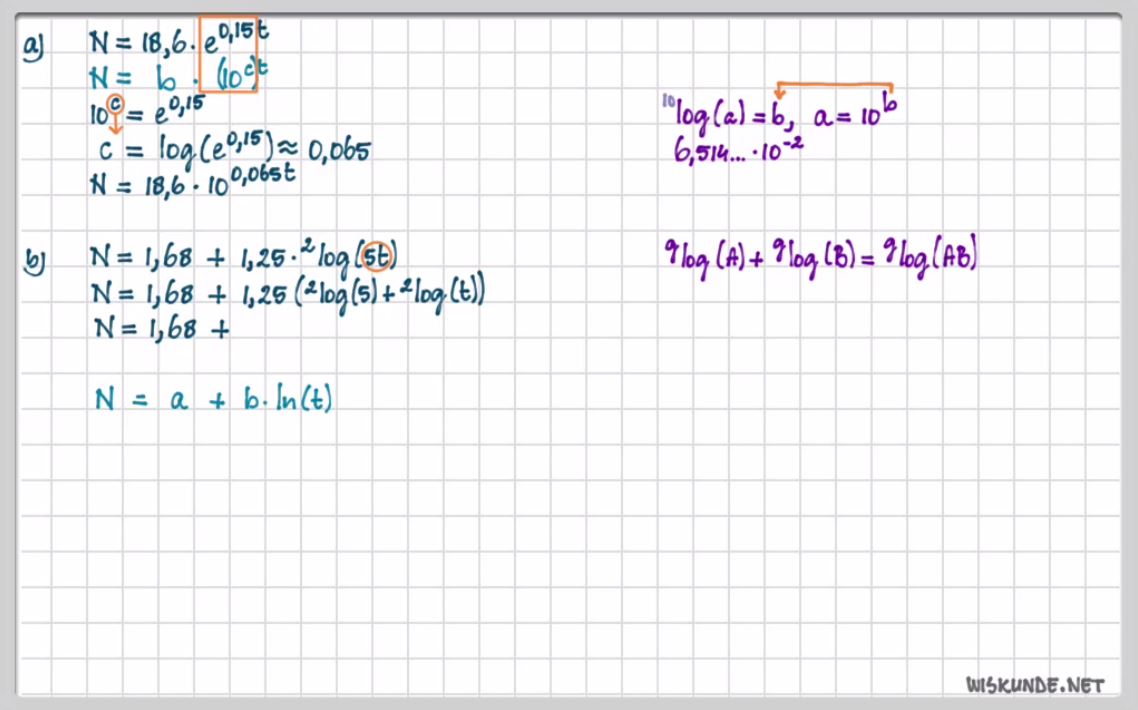 a) N = 18,6 · e^0,15t
N = b · (10^c)^t
10^c = e^0,15
c = log(e^0,15) ≈ 0,065
N = 18,6 · 10^0,065t
¹⁰log(a) = b, a = 10^b
6,514... · 10^-2
b) N = 1,68 + 1,25 · ²log(5t)
N = 1,68 + 1,25 (²log(5) + ²log(t))
N = 1,68 +
N = a + b · ln(t)
ᵍlog(A) + ᵍlog(B) = ᵍlog(AB)
WISKUNDE.NET